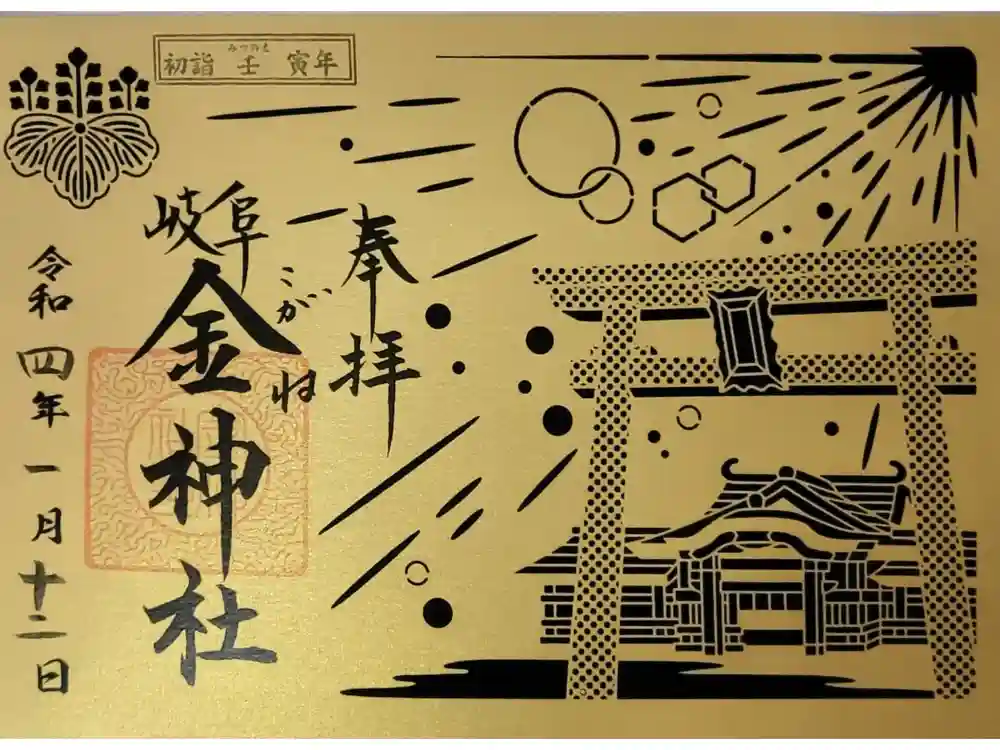 みつのえ
初詣 壬 寅年
奉拝
岐阜
こがね
金神社
令和四年一月十二日